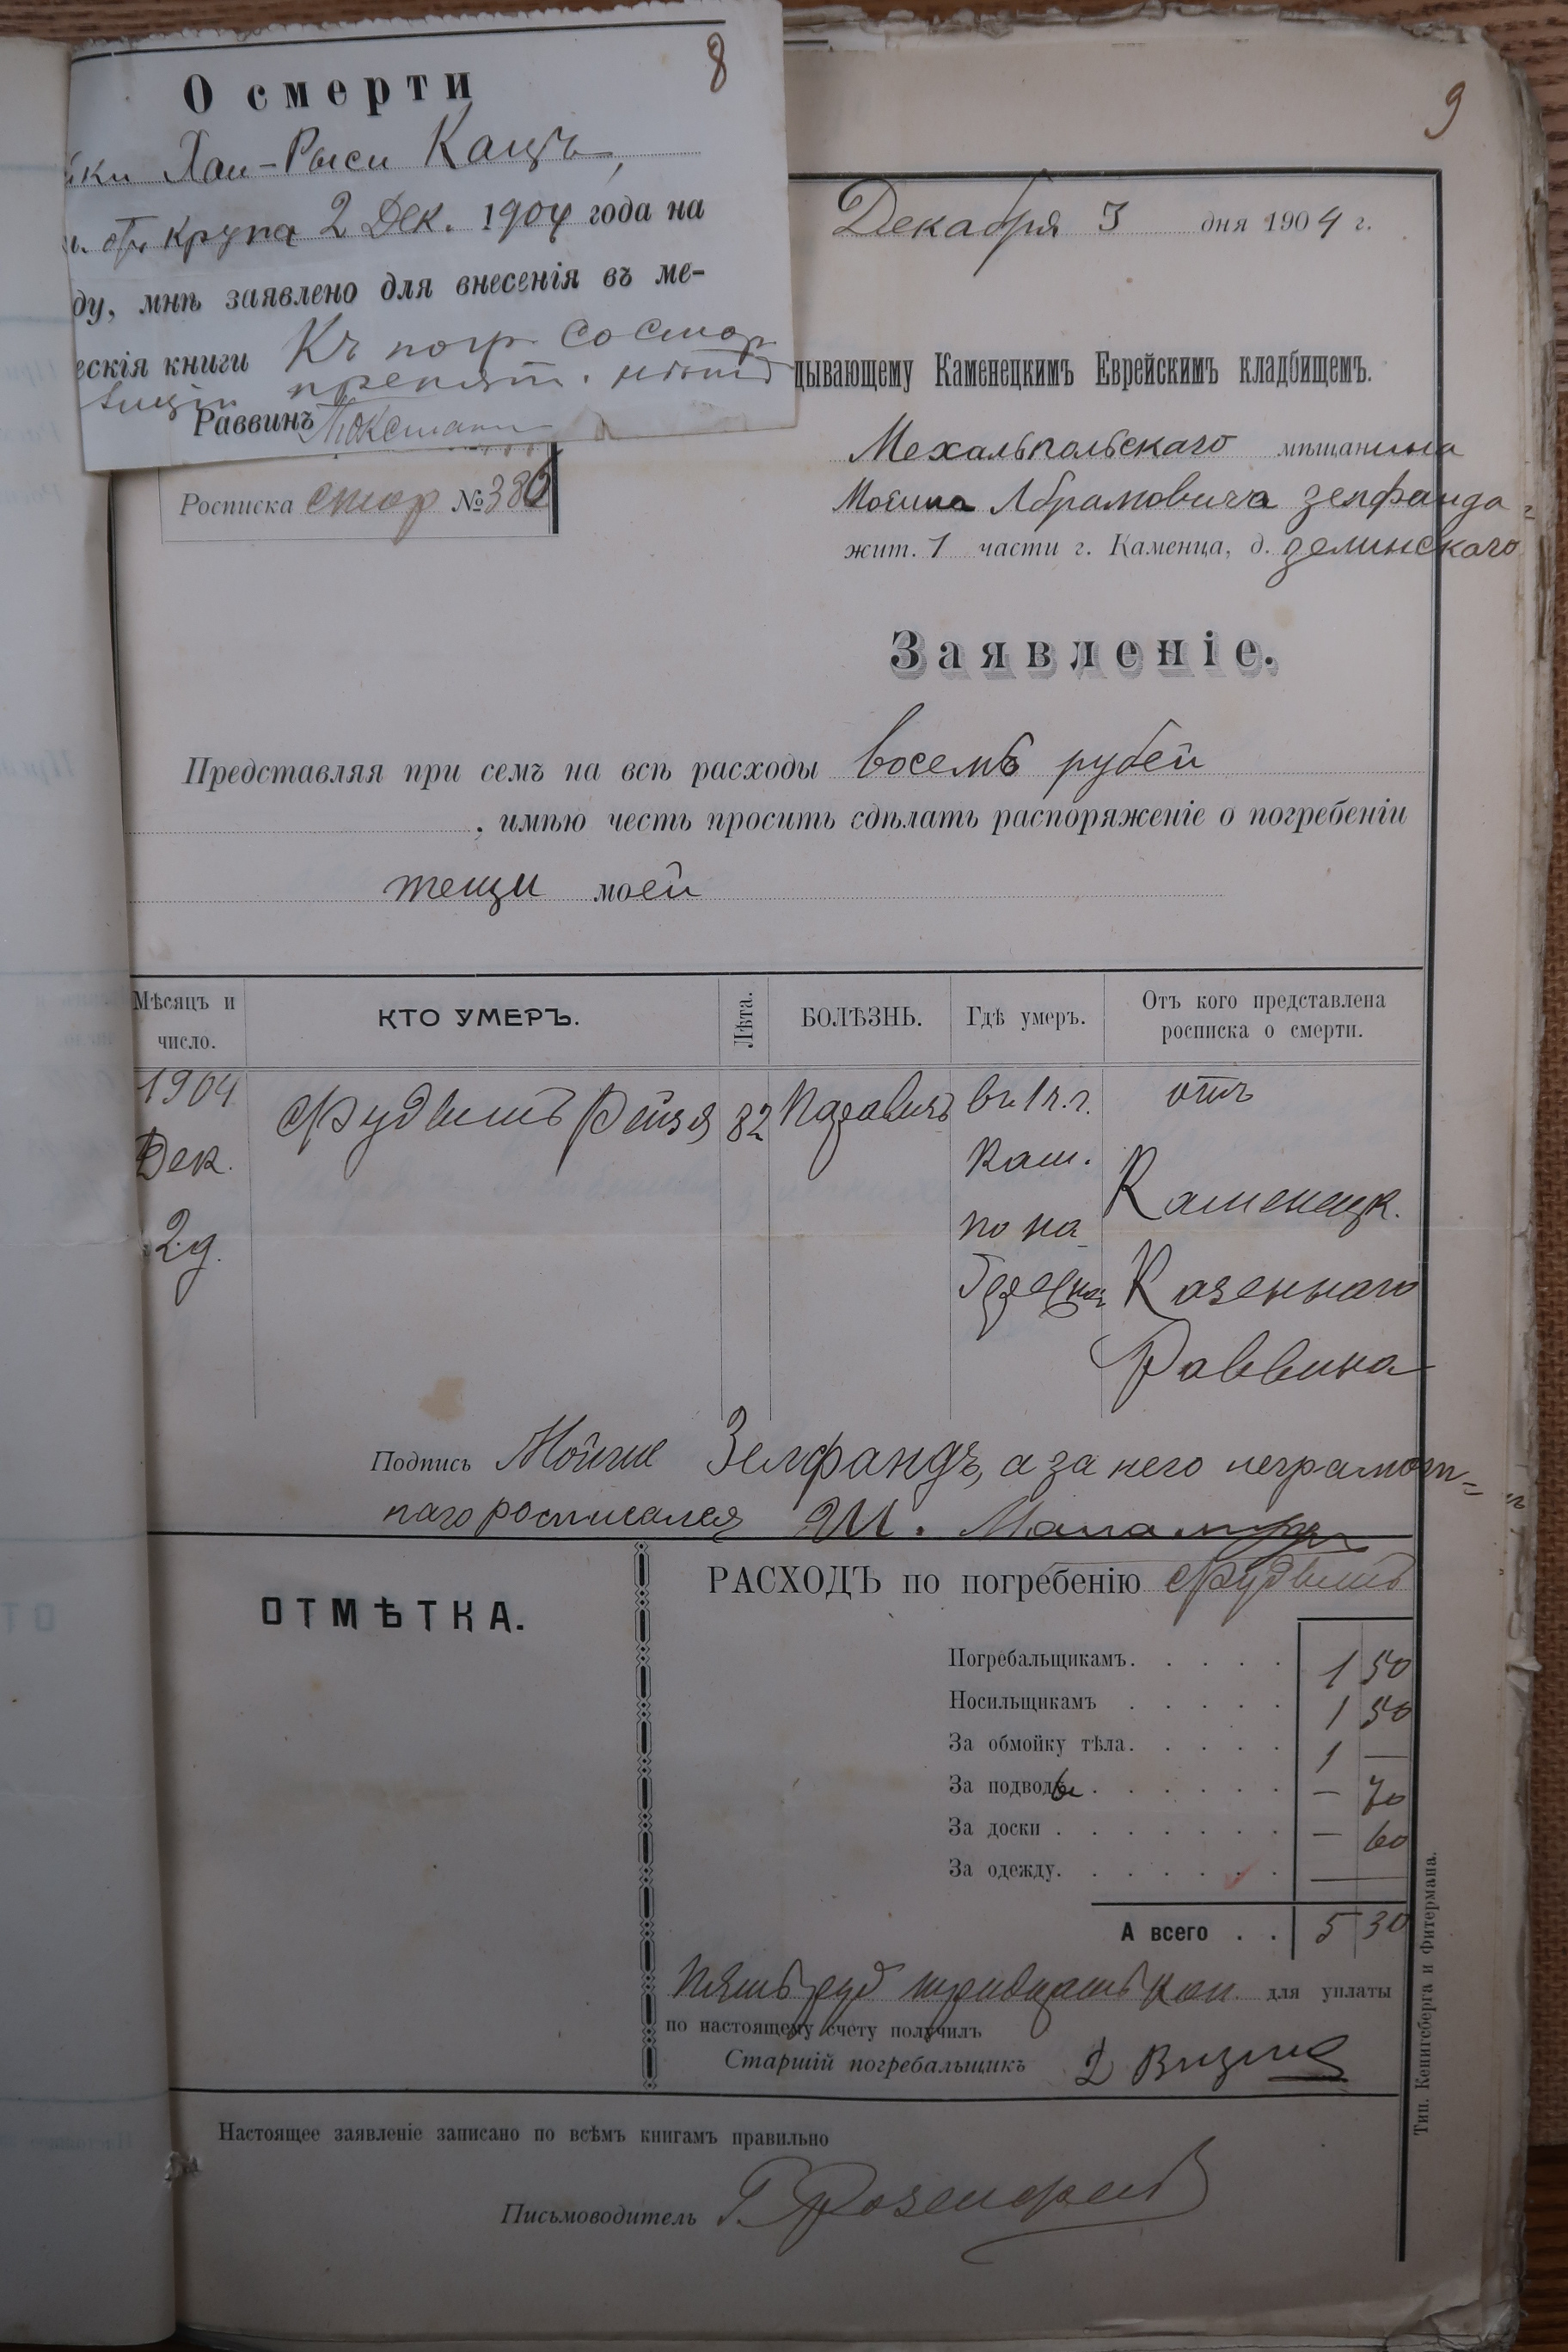 8
О смерти
Хаи-Рыси Кацъ,
отъ крупа 2 Дек. 1904 года на
ду, мнѣ заявлено для внесенія въ ме-
ескія книги Къ погр. со стор
препят. нѣтъ
Раввинъ
9
Декабря 3 дня 1904 г.
дывающему Каменецкимъ Еврейскимъ кладбищемъ.
Росписка №
мѣщанина
Абрамовича Зелфанда
жит. 1 части г. Каменца, д. Зелинскаго
Заявленіе.
Представляя при семъ на всѣ расходы восемь рубей
, имѣю честь просить сдѣлать распоряженіе о погребеніи
тещи моей
Мѣсяцъ и число.
КТО УМЕРЪ.
Лѣта.
БОЛѢЗНЬ.
Гдѣ умеръ.
Отъ кого представлена росписка о смерти.
1904 82 въ 1 ч. г. отъ
Дек. Кам. Каменецк.
2 д. по на Казеннаго
Раввина
Подпись Мойше Зелфандъ, а за него неграмот-
наго росписался Ш.
ОТМѢТКА.
РАСХОДЪ по погребенію
Погребальщикамъ. 1 50
Носильщикамъ 1 50
За обмойку тѣла. 1 —
За подводы — 70
За доски — 60
За одежду. —
А всего 5 30
Пять руб тридцать коп. для уплаты
по настоящему счету получилъ
Старшій погребальщикъ
Настоящее заявленіе записано по всѣмъ книгамъ правильно
Письмоводитель
Тип. Кенигсберга и Фитермана.